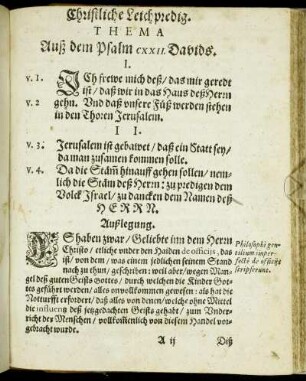 Christliche Leichpredig.
THEMA
Auß dem Psalm CXXII. Davids.
I.
v. 1. ICh frewe mich deß / das mir geredt
ist / daß wir in das Haus deß Herrn
v. 2 gehn. Vnd daß vnsere Füß werden stehen
in den Thoren Jerusalem.
II.
v. 3. Jerusalem ist gebawet / daß ein Statt sey /
da man zusamen kommen solle.
v. 4. Da die Stäm̃ hinauff gehen sollen / nem-
lich die Stäm deß Herrn: zu predigen dem
Volck Israel / zu dancken dem Namen deß
HERRN.
Außlegung.
ES haben zwar / Geliebte inn dem Herrn
Christo / etliche vnder den Haiden de officijs, das
ist / von dem / was einem jedlichen seinem Stand
nach zu thun / geschriben: weil aber / wegen Man-
gel deß guten Geists Gottes / durch welchen die Kinder Got-
tes geführt werden / alles onvollkommen gewesen: als hat die
Notturfft erfordert / daß alles von denen / welche ohne Mittel
die influentz deß jetzgedachten Geists gehabt / zum Vnder-
richt der Menschen / vollkom̃enlich von diesem Handel vor-
gebracht wurde.
Philosophi gen-
tilium imper-
fectè de officijs
scripserunt.
A ij
Deß